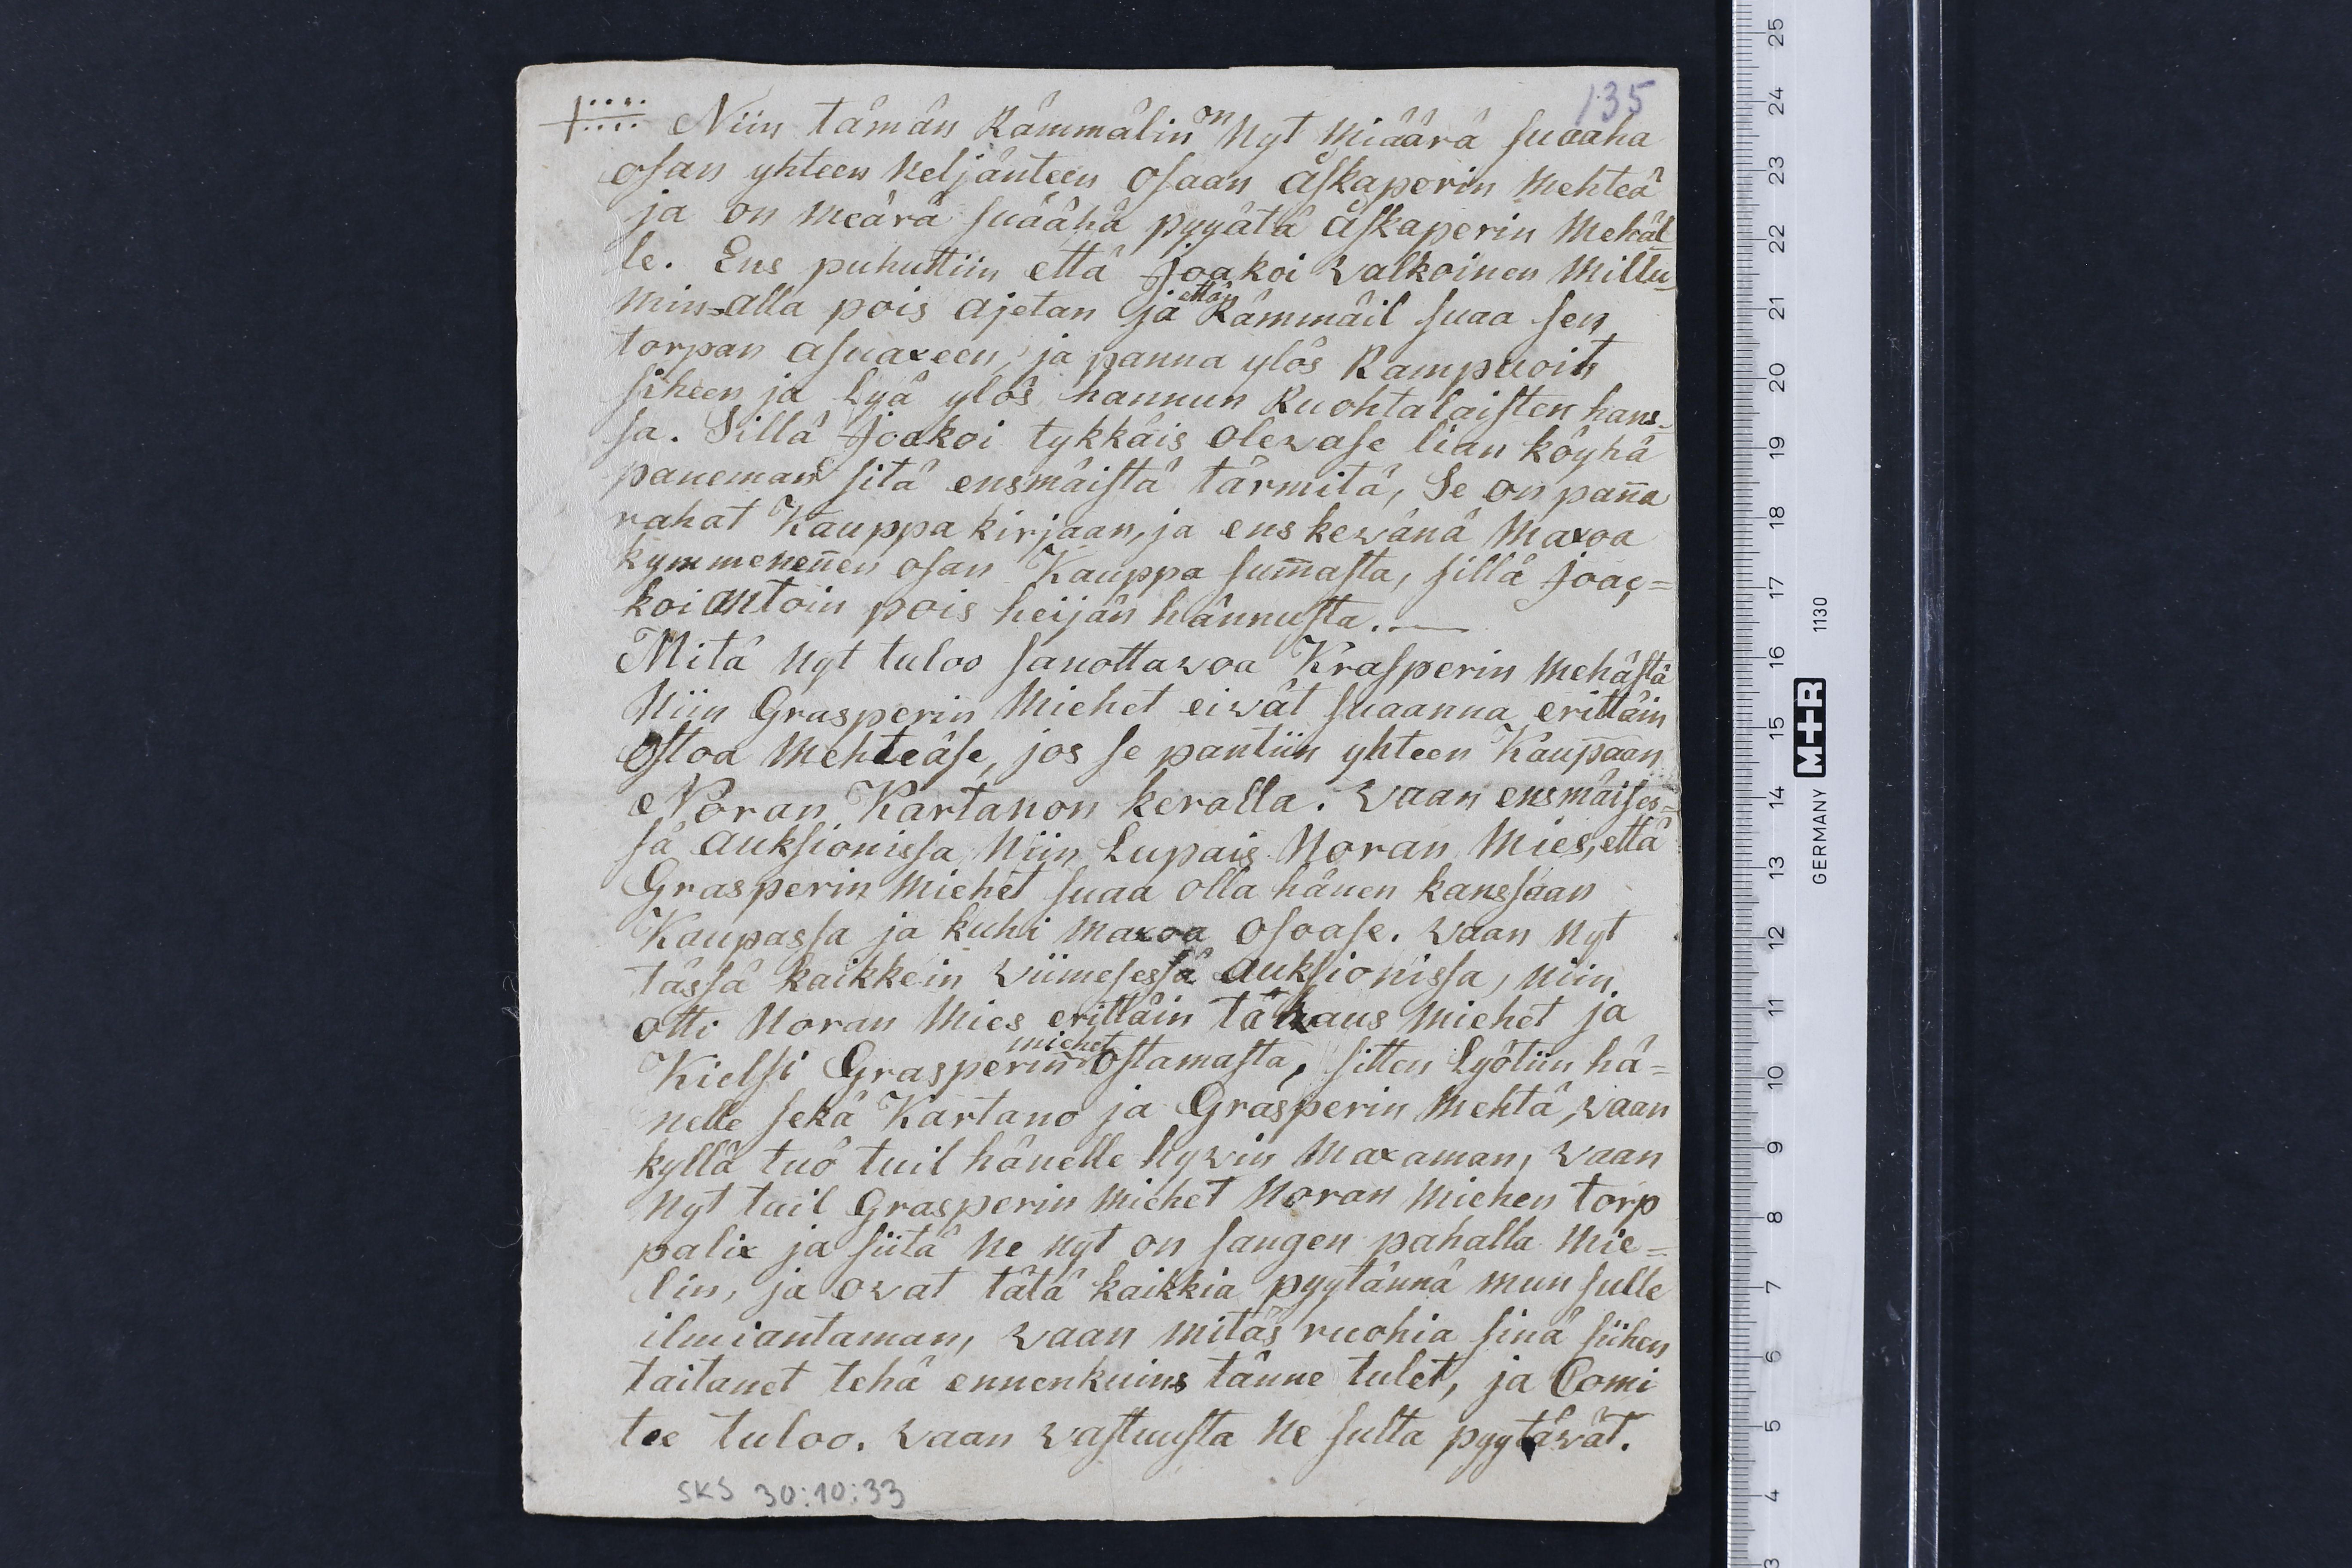 135
Niin tämän Kämmälin on Nyt Miäärä suaaha
osan yhteen Neljänteen osaan Åskaperin Mehteä
ja on meärä suäähä pyyätä Åskaperin Mehäl
le. Ens puhuttiin että Joakoi Valkoinen Millu-
min=alla pois ajetan ja että Kämmäil suaa sen
torpan asuaxeen, ja panna ylös Rampuoit
siheen ja Lyä ylös hannun Kuohtalaisten hans-
sa. Sillä Joakoi tykkäis olevase lian köyhä
paneman sitä ensmäistä tärmitä, Se on pan̄a
rahat Kauppa kirjaan, ja ens kevänä Maxoa
kymmenen̄en osan Kauppa sum̄asta, sillä Joac=
koi antoin pois heijän hännusta.
Mitä Nyt tuloo sanottavoa Krasperin Mehästä
Niin Grasperin Miehet eivät suaanna erittäin
Ostoa Mehteäse, jos se pantiin yhteen Kaupaan
Noran Kartanon keralla. Vaan ensmäises=
sä Auksionissa Niin Lupais Noran Mies, että
Grasperin Miehet suaa olla hänen kanssaan
Kaupassa ja kuhi Maxoa Osoase. Vaan Nyt
tässä kaikkein viimesessä Auksionissa, Niin
otti Noran Mies erittäin täkaus Miehet ja
Kielsi Grasperin miehet Ostamasta, sitten Lyötiin hä=
nelle sekä Kartano ja Grasperin Mehtä, vaan
kyllä tuo tuil hänelle hyvin Maxaman, vaan
Nyt tuil Grasperin Miehet Noran Miehen torp
palix ja siitä Ne Nyt on sangen pahalla Mie=
lin, ja ovat tätä kaikkia pyytännä mun sulle
ilmiantaman, vaan mitäs ruohia sinä siihen
taitanet tehä ennenkuins tänne tulet, ja Comi
tee tuloo. Vaan vastuusta Ne sulta pyytävät.
SKS 30:10:33
25
24
23
22
21
20
19
18
17
16
15
14
13
12
11
10
9
8
7
6
5
4
3
GERMANY M+R 1130